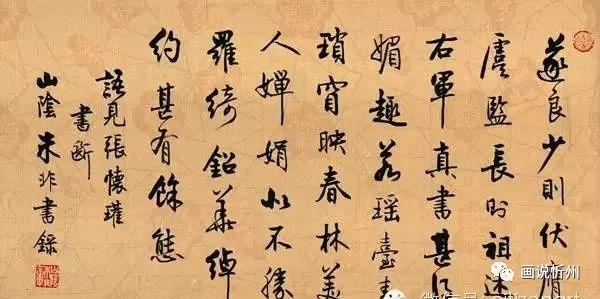 遂良少則伏膺
虞監長則祖述
右軍真書甚得
媚趣若瑶臺青
瑣窅映春林美
人嬋娟似不勝
羅綺鉛華綽
約甚有餘態
語見張懷瓘
書斷
山陰朱非書錄
画说忻州